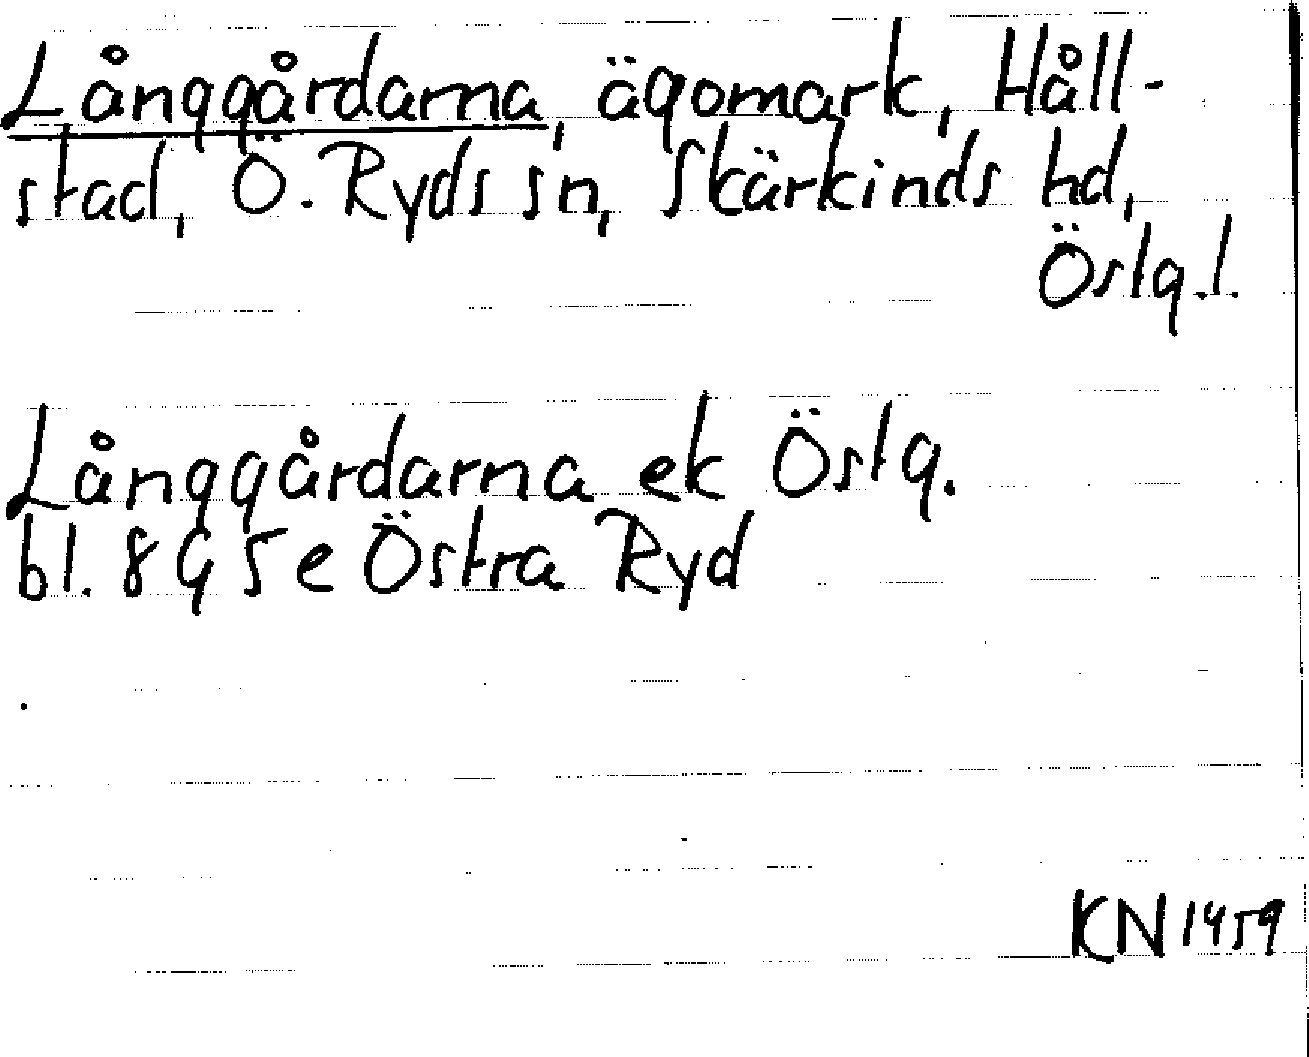 Långgårdarna, ägomark, Håll-
stad, Ö. Ryds sn, Skärkinds hd,
Östg.l.
Långgårdarna ek Östg.
bl. 8G5e Östra Ryd
KN1459